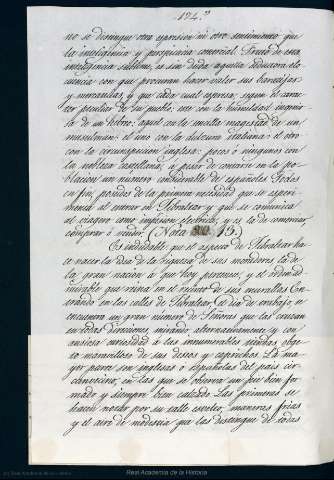 194.º
no se distingue otra expresion ni otro sentimiento que
la inteligencia y perspicacia comercial. Fruto de esta
inteligencia sublime, es sin duda aquella seductora elo
cuencia con que procuran hacer valer sus baratijas
y mercaderias, y que cada cual expresa, segun el carac
ter peculiar de su pueblo; este con la humildad ingenio
sa de un hebreo: aquel con la inculta magestad de un
musulman: el uno con la dulzura italiana: el otro
con la circunspeccion inglesa: pocos ó ningunos con
la nobleza castellana, á pesar de contarse en la po
blacion un número considerable de españoles. Todos
en fin, poseidos de la primera necesidad que se esperi
menta al entrar en Gibraltar y que se comunica
al viagero como impulsion eléctrica, y es la de comerciar
comprar ó vender. (Nota 15.)
Es indudable que el aspecto de Gibraltar ha
ce nacer la idea de la riqueza de sus moradores, la de
la gran nacion á que hoy pertenece, y el orden ad
mirable que reina en el recinto de sus murallas. En
trando en las calles de Gibraltar, en dia de trabajo, se
encuentra un gran número de Señoras que las cruzan
en todas direcciones, mirando alternativamente y con
ansiosa curiosidad á las innumerables tiendas, obge
to maravilloso de sus deseos y caprichos. La ma
yor parte son inglesas ó españolas del pais cir
cunvecino, en las que se observa un pie bien for
mado y siempre bien calzado. Las primeras se
hacen notar por su talle esvelto, maneras frias
y el aire de modestia que las distingue de todas
Real Academia de la Historia